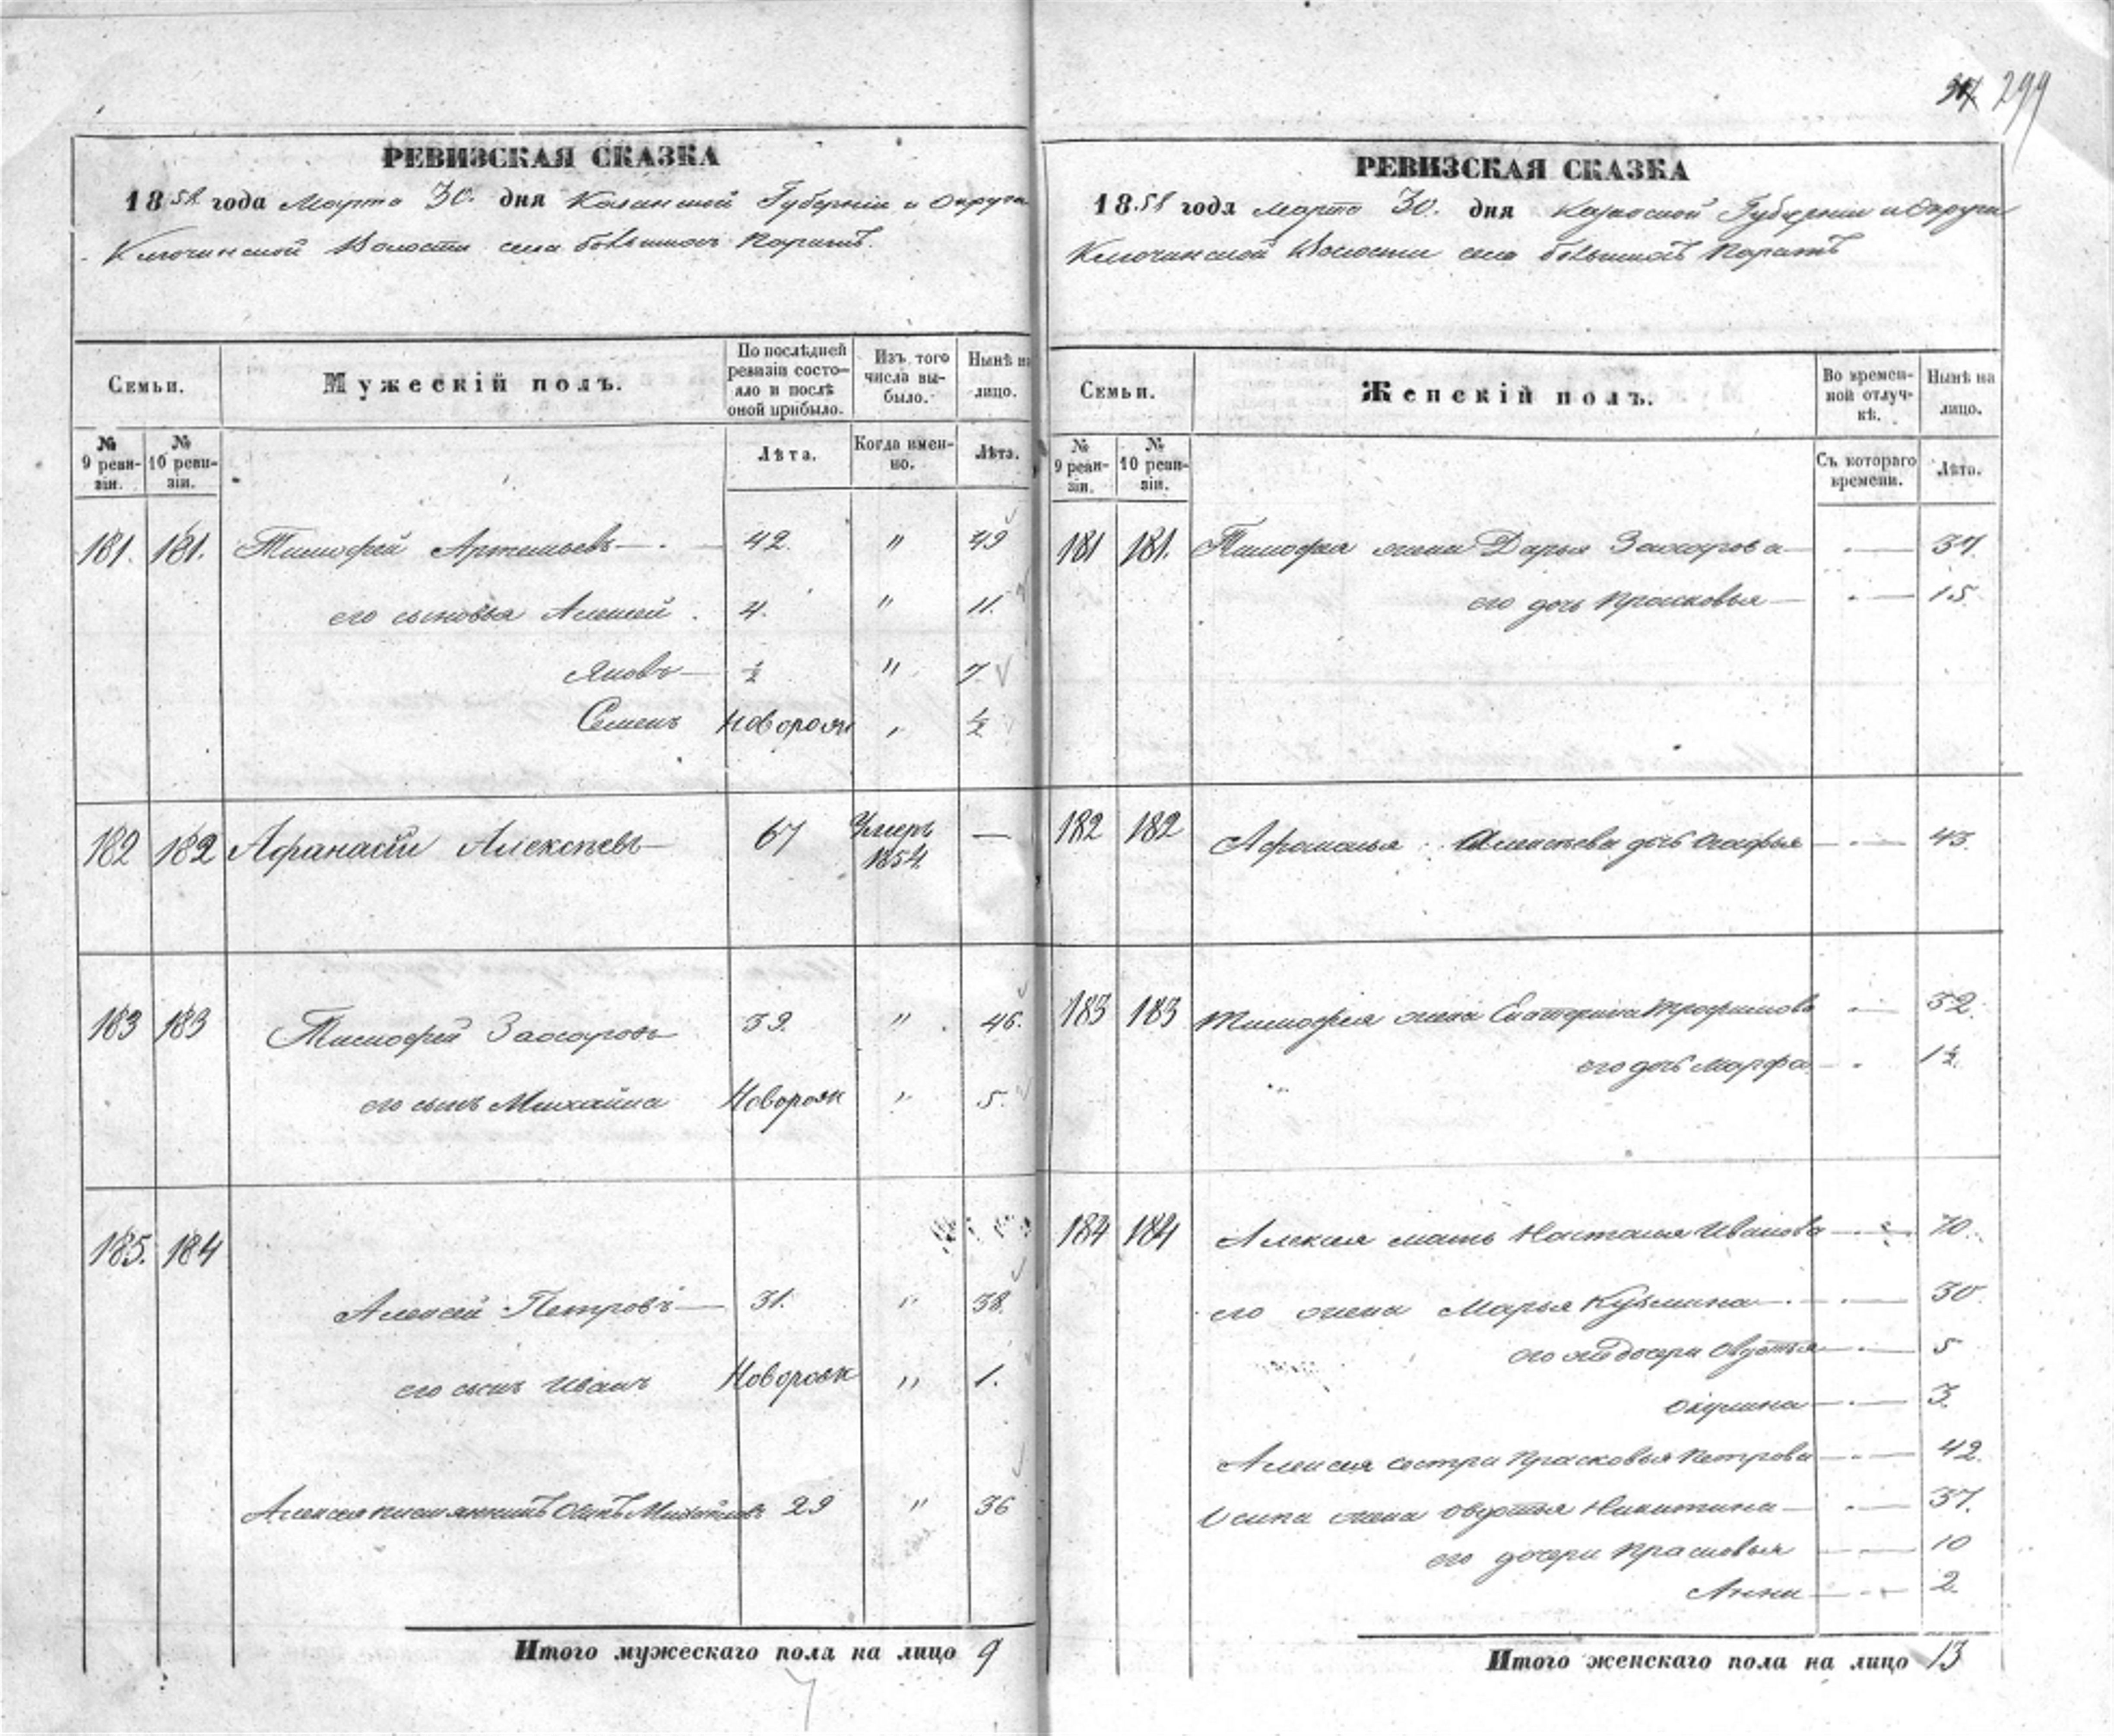 299
РЕВИЗСКАЯ СКАЗКА
1858 года Марта 30. дня Казанской Губернiи и Округа
Ключинской Волости села большихъ Каратъ.
Семьи.
Мужескiй полъ.
По послѣдней ревизiи состояло и послѣ оной прибыло.
Изъ того числа выбыло.
Нынѣ на лицо.
№ 9 ревизiи.
№ 10 ревизiи.
Лѣта.
Когда именно.
Лѣта.
181. 181. Тимофей Артемьевъ 42. " 49
его сыновья Алексей 4. " 11.
Яковъ ½ " 7
Семенъ Новорож " ½
182 182 Афанасiй Алексѣевъ 67 Умеръ 1854 —
183 183 Тимофей Захаровъ 39. " 46.
его сынъ Михайла Новорож " 5.
185. 184
Алексей Петровъ 31. " 38.
его сынъ Иванъ Новорож " 1.
Алексея Осипъ Михайловъ 29 " 36
Итого мужескаго пола на лицо 9
РЕВИЗСКАЯ СКАЗКА
1858 года Марта 30. дня Казанской Губернiи и Округа
Ключинской Волости села большихъ Каратъ
Семьи.
Женскiй полъ.
Во временной отлучкѣ.
Нынѣ на лицо.
№ 9 ревизiи.
№ 10 ревизiи.
Съ котораго времени.
Лѣта.
181 181. Тимофея жена Дарья Захарова — 37.
его дочь Прасковья — 15
182 182 Афанасья Алексѣева дочь Агафья — 43.
183 183 Тимофея жена Екатерина Трофимова — 32.
его дочь Марфа — 1½.
184 184 Алексея мать Настасья Иванова — 70.
его жена Марья Кузьмина — 30
дочери Овдотья — 5
Окулина — 3
Алексея сестра Прасковья Петрова — 42.
Осипа жена Овдотья Никитина — 37.
его дочери Прасковья — 10
Анна — 2
Итого женскаго пола на лицо 13